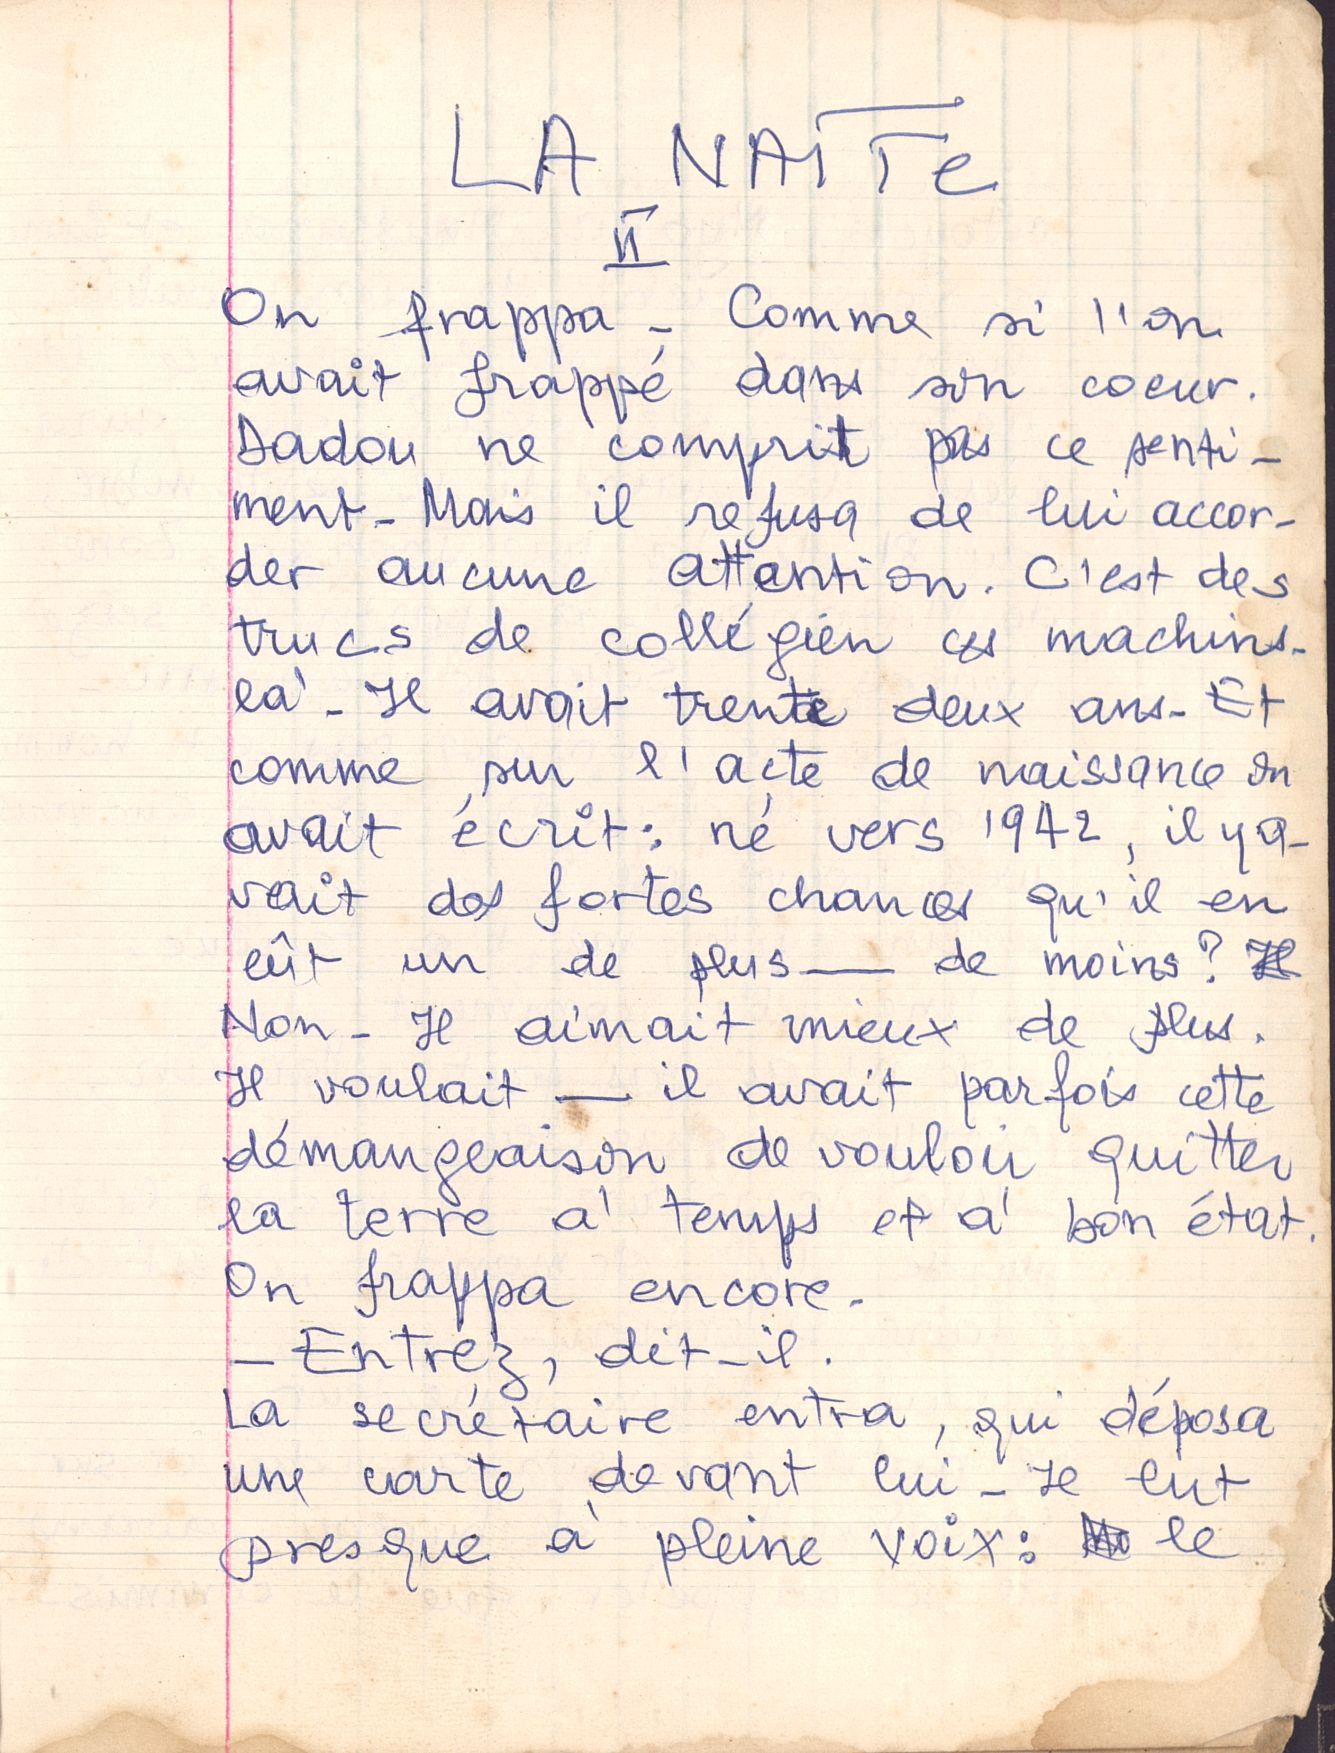 LA NATTE
II
On frappa - Comme si l'on
avait frappé dans son coeur.
Dadou ne comprit pas ce senti-
ment - Mais il refusa de lui accor-
der aucune attention. C'est des
trucs de collégien ces machins-
là - Il avait trente deux ans - Et
comme sur l'acte de naissance on
avait écrit : né vers 1942, il y a-
vait des fortes chances qu'il en
eût un de plus — de moins ?
Non - Il aimait mieux de plus.
Il voulait — il avait parfois cette
démangeaison de vouloir quitter
la terre à temps et à bon état.
On frappa encore -
- Entrez, dit-il.
La secrétaire entra, qui déposa
une carte devant lui - Il lut
presque à pleine voix : le